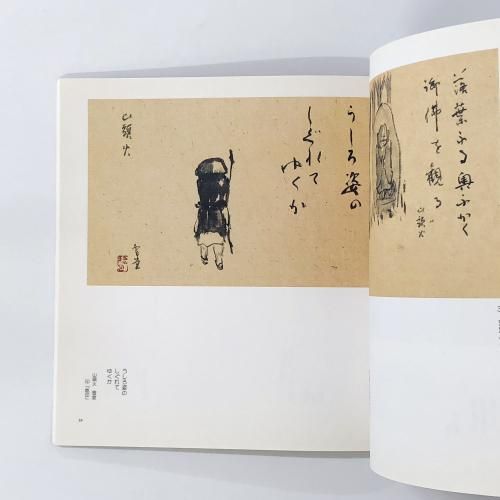 落葉ふる奥ふかく
御佛を観る
山頭火
うしろ姿の
しぐれて
ゆくか
山頭火
うしろ姿の
しぐれて
ゆくか